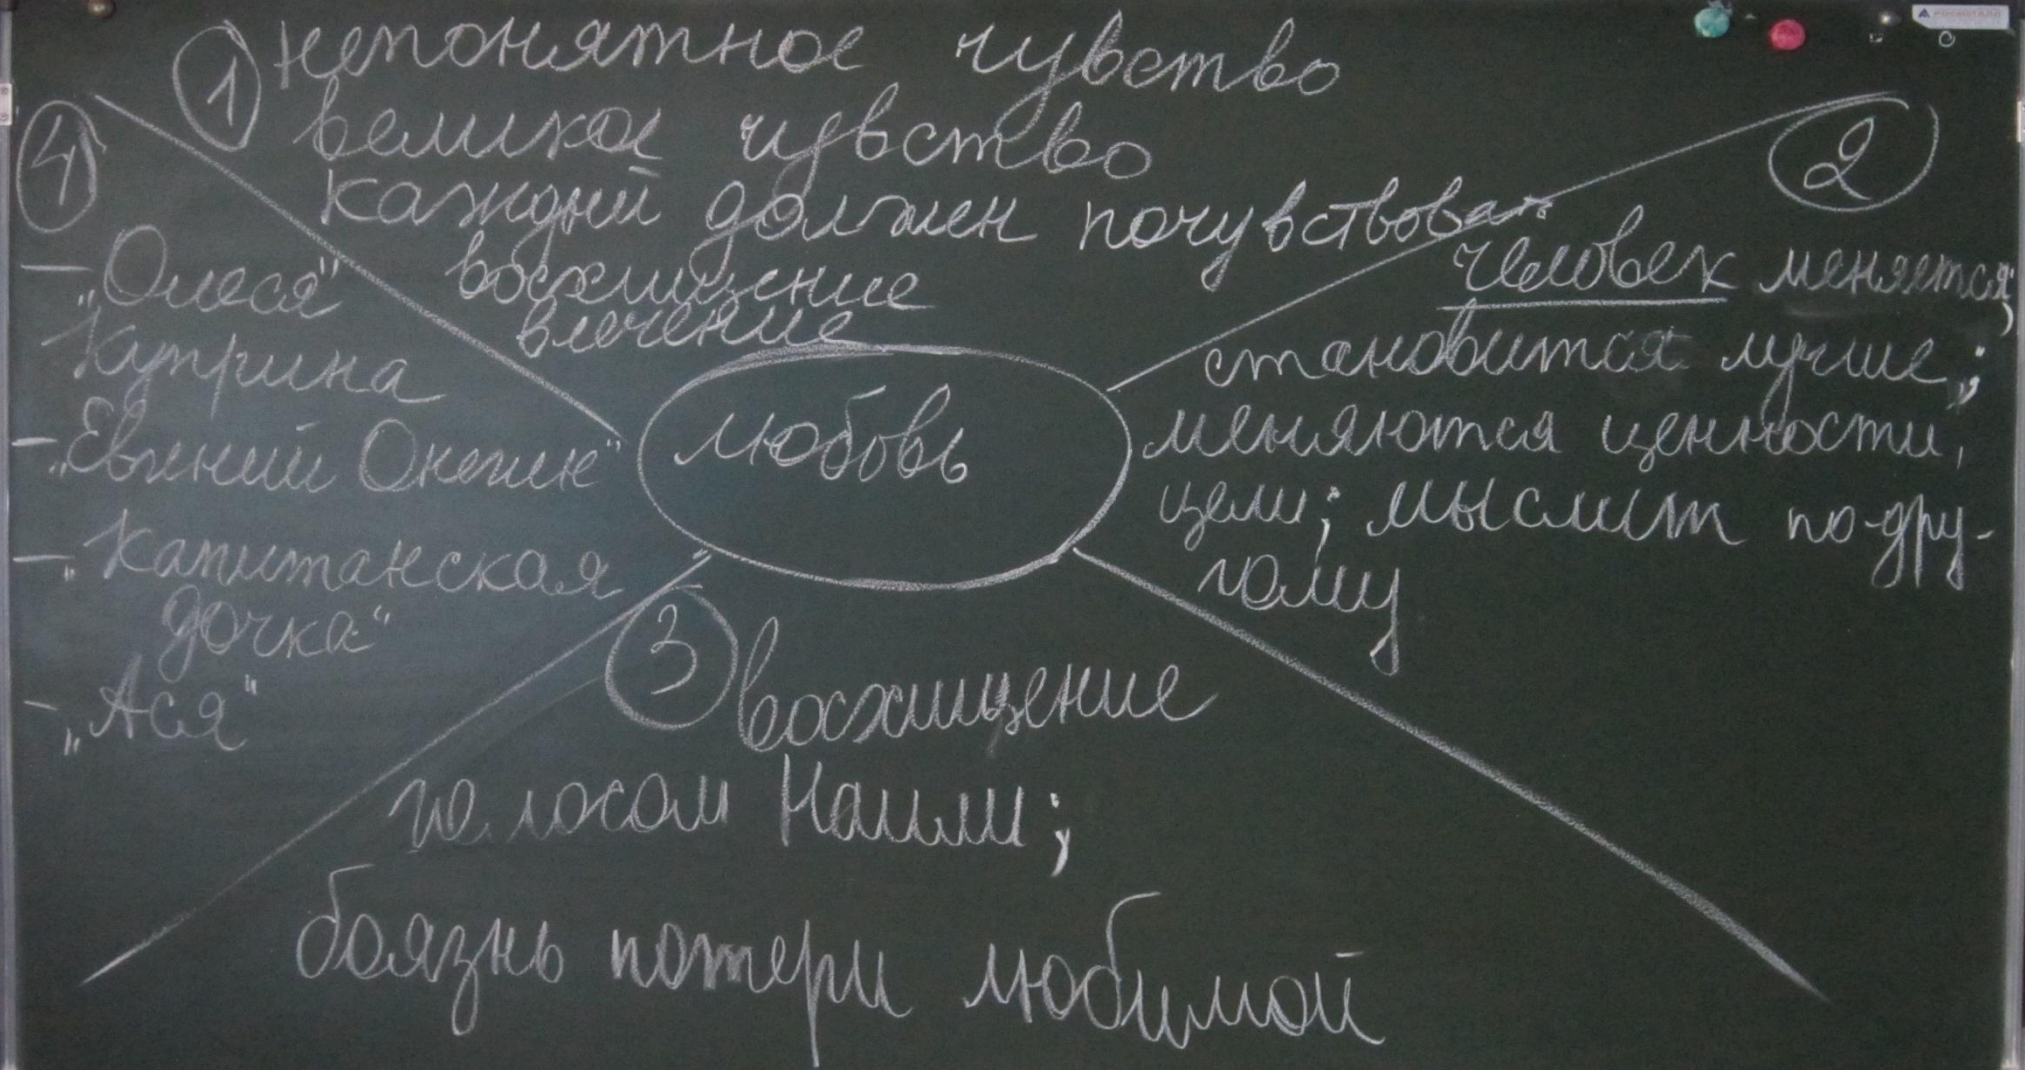 1 непонятное чувство
великое чувство
каждый должен почувствоват
восхищение
влечение
2
человек меняется;
становится лучше;
меняются ценности,
цели; мыслит по-дру-
гому
любовь
3 восхищение
голосом Наили;
боязнь потери любимой
4
– „Олеся“
Куприна
– „Евгений Онегин“
– „Капитанская
дочка“
– „Ася“